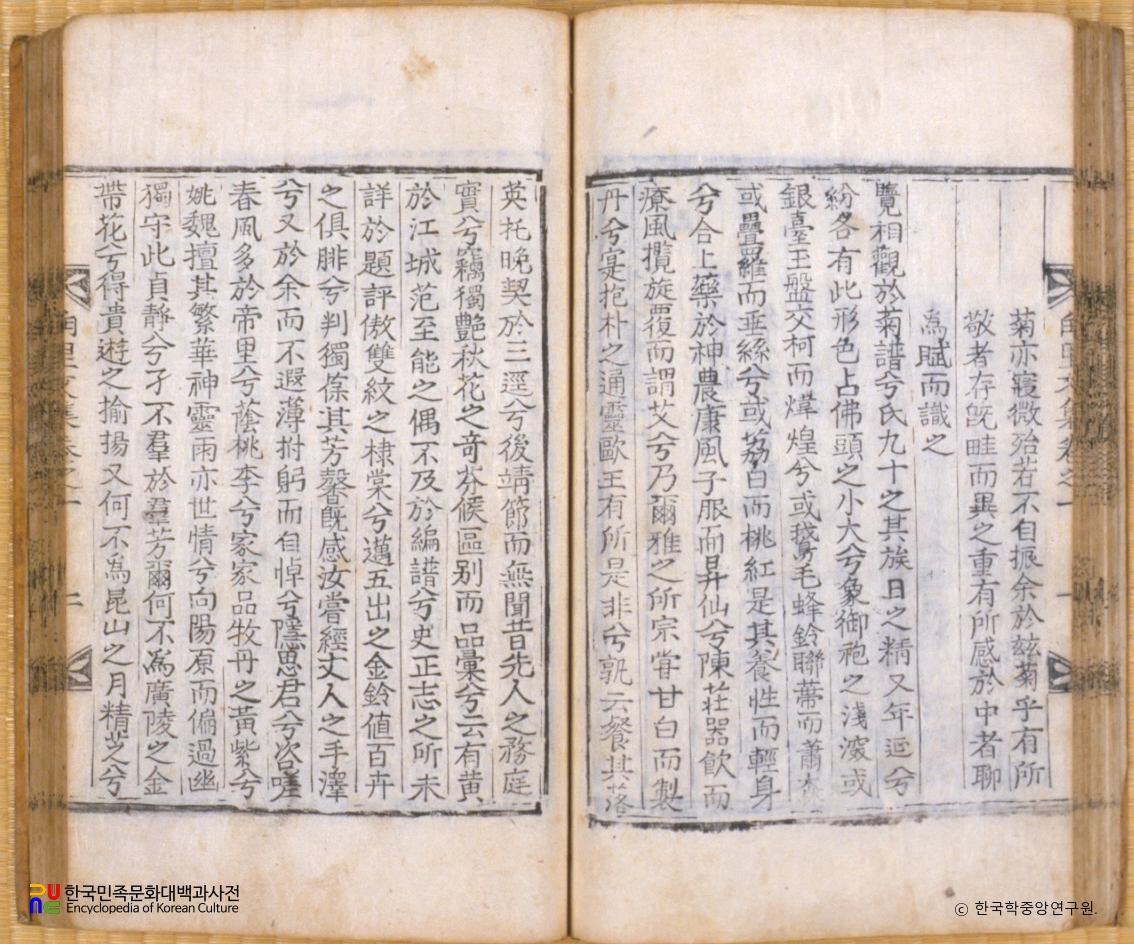 菊亦寢微殆若不自振余於玆菊乎有所
敬者存旣畦而異之重有所感於中者聊
爲賦而識之
覽相觀於菊譜兮氏九十之其族日之精又年延兮
紛各有此形色占佛頭之小大兮象御袍之淺深或
銀臺玉盤交柯而煒煌兮或鵝毛蜂鈴聯蔕而蕭森
或疊羅而垂絲兮或荔白而桃紅是其養性而輕身
兮合上藥於神農康風子服而昇仙兮陳莊器飮而
療風攬旋覆而謂艾兮乃爾雅之所宗甞甘白而製
丹兮寔抱朴之通靈歐王有所是非兮孰云餐其落
英托晩契於三逕兮後靖節而無聞昔先人之務庭
實兮竊獨艷秋花之奇芬候區别而品彙兮云有黄
於江城范至能之偶不及於編譜兮史正志之所未
詳於題評傲雙紋之棣棠兮邁五出之金鈴値百卉
之俱腓兮判獨葆其芳馨旣感汝嘗經丈人之手澤
兮又於余而不遐薄拊躬而自悼兮隱思君兮咨嗟
春風多於帝里兮蔭桃李兮家家品牧丹之黃紫兮
姚魏擅其繁華神靈雨亦世情兮向陽原而偏過幽
獨守此貞靜兮孑不羣於羣芳爾何不爲廣陵之金
帶花兮得貴遊之揄揚又何不爲昆山之月精芝兮
文集卷之一
二
한국민족문화대백과사전
Encyclopedia of Korean Culture
© 한국학중앙연구원.